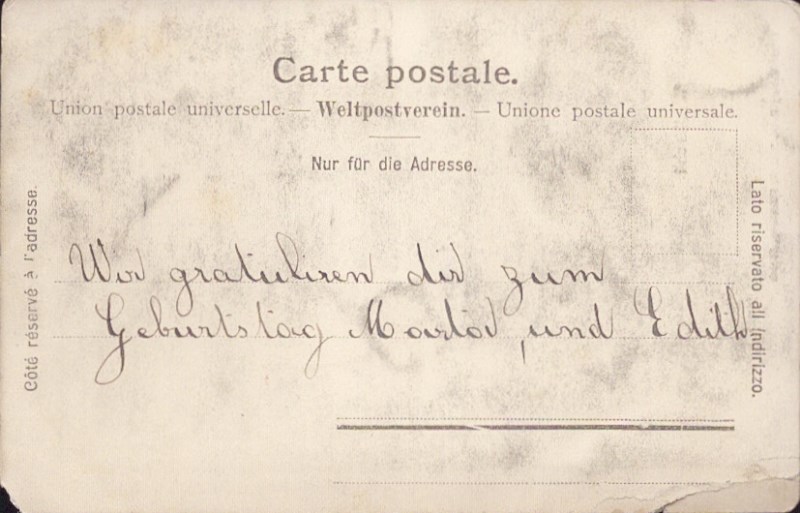 Carte postale.
Union postale universelle. — Weltpostverein. — Unione postale universale.
Nur für die Adresse.
Côté réservé à l'adresse.
Lato riservato all indirizzo.
Wir gratuliren dir zum
Geburtstag Marta, und Edith